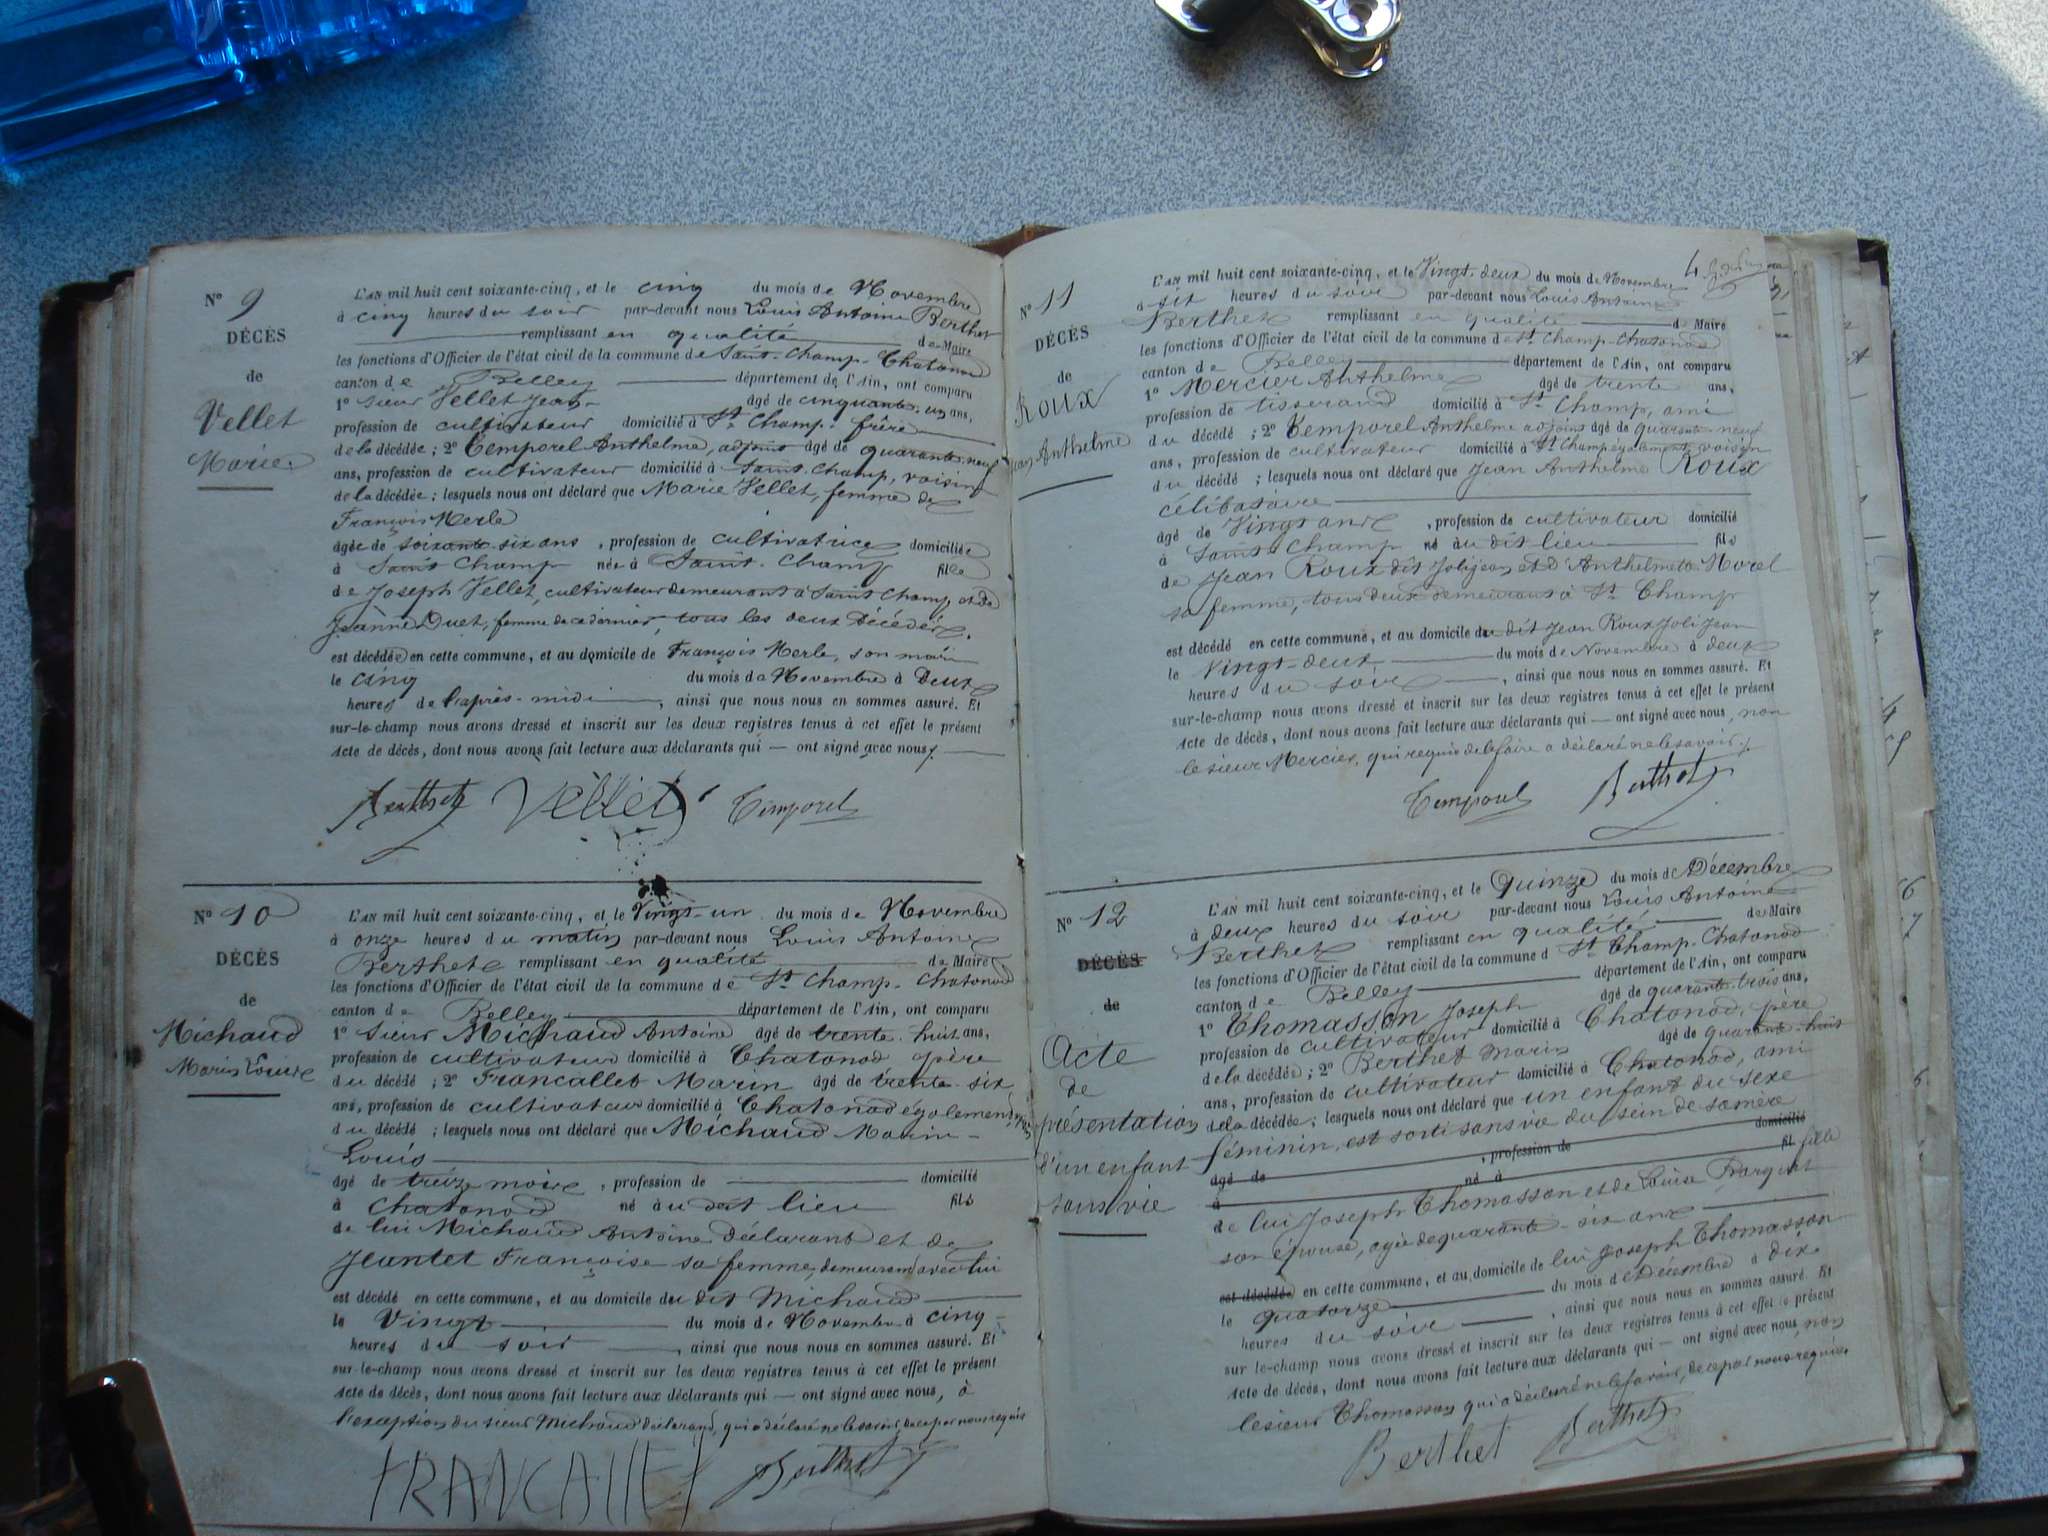 N° 9
DÉCÈS
de
Vellet
Marie
L'AN mil huit cent soixante-cinq, et le cinq du mois de Novembre
à cinq heures du soir par-devant nous Louis Antoine Berthet
remplissant en qualité de Maire
les fonctions d'Officier de l'état civil de la commune de Saint-Champ-Chatonod
canton de Belley département de l'Ain, ont comparu
1° sieur Vellet Jean âgé de cinquante-un ans,
profession de cultivateur domicilié à St Champ, frère
de la décédée ; 2° Temporel Anthelme, adjoint âgé de quarante-neuf
ans, profession de cultivateur domicilié à Saint-Champ, voisin
de la décédée ; lesquels nous ont déclaré que Marie Vellet, femme de
François Merle
âgée de soixante-six ans, profession de cultivatrice domiciliée
à Saint Champ née à Saint-Champ fille
de Joseph Vellet, cultivateur demeurant à Saint Champ et de
Jeanne Duet, femme de ce dernier, tous les deux Décédés.
est décédée en cette commune, et au domicile de François Merle, son mari
le cinq du mois de Novembre à Deux
heures de l'après-midi, ainsi que nous nous en sommes assuré. Et
sur-le-champ nous avons dressé et inscrit sur les deux registres tenus à cet effet le présent
Acte de décès, dont nous avons fait lecture aux déclarants qui — ont signé avec nous.
Berthet Vellet Temporel
N° 10
DÉCÈS
de
Michaud
Marin Louis
L'AN mil huit cent soixante-cinq, et le Vingt-un du mois de Novembre
à onze heures du matin par-devant nous Louis Antoine
Berthet remplissant en qualité de Maire
les fonctions d'Officier de l'état civil de la commune de St Champ-Chatonod
canton de Belley département de l'Ain, ont comparu
1° Sieur Michaud Antoine âgé de trente-huit ans,
profession de cultivateur domicilié à Chatonod père
du décédé ; 2° Francallet Marin âgé de trente-six
ans, profession de cultivateur domicilié à Chatonod également
du décédé ; lesquels nous ont déclaré que Michaud Marin
Louis
âgé de treize mois, profession de domicilié
à Chatonod né au dit lieu fils
de lui Michaud Antoine déclarant et de
Jeantet Françoise sa femme, demeurant avec lui
est décédé en cette commune, et au domicile du dit Michaud
le Vingt du mois de Novembre à cinq
heures du soir, ainsi que nous nous en sommes assuré. Et
sur-le-champ nous avons dressé et inscrit sur les deux registres tenus à cet effet le présent
Acte de décès, dont nous avons fait lecture aux déclarants qui — ont signé avec nous, à
l'exception du sieur Michaud déclarant, qui a déclaré ne le savoir, de ce par nous requis
FRANCAllET Berthet
4
N° 11
DÉCÈS
de
Roux
Jean Anthelme
L'AN mil huit cent soixante-cinq, et le Vingt-deux du mois de Novembre
à six heures du soir par-devant nous Louis Antoine
Berthet remplissant en qualité de Maire
les fonctions d'Officier de l'état civil de la commune de St Champ-Chatonod
canton de Belley département de l'Ain, ont comparu
1° Mercier Anthelme âgé de trente ans,
profession de tisserand domicilié à St Champ, ami
du décédé ; 2° Temporel Anthelme adjoint âgé de quarante-neuf
ans, profession de cultivateur domicilié à St Champ également, voisin
du décédé ; lesquels nous ont déclaré que Jean Anthelme Roux
célibataire
âgé de Vingt ans, profession de cultivateur domicilié
à Saint-Champ né au dit lieu fils
de Jean Roux dit Jolijean et d'Anthelmette Morel
sa femme, tous deux demeurant à St Champ
est décédé en cette commune, et au domicile du dit Jean Roux Joli Jean
le Vingt-deux du mois de Novembre à deux
heures du soir, ainsi que nous nous en sommes assuré. Et
sur-le-champ nous avons dressé et inscrit sur les deux registres tenus à cet effet le présent
Acte de décès, dont nous avons fait lecture aux déclarants qui — ont signé avec nous, non
le sieur Mercier, qui requis de le faire a déclaré ne le savoir.
Temporel Berthet
N° 12
DÉCÈS
de
Acte
de
présentation
d'un enfant
sans vie
L'AN mil huit cent soixante-cinq, et le Quinze du mois de Décembre
à deux heures du soir par-devant nous Louis Antoine
Berthet remplissant en qualité de Maire
les fonctions d'Officier de l'état civil de la commune d St Champ-Chatonod
canton de Belley département de l'Ain, ont comparu
1° Thomasson Joseph âgé de quarante-trois ans,
profession de cultivateur domicilié à Chatonod, père
de la décédée ; 2° Berthet Marin âgé de quarante-huit
ans, profession de cultivateur domicilié à Chatonod, ami
de la décédée ; lesquels nous ont déclaré que un enfant du sexe
féminin, est sorti sans vie du sein de sa mère
âgé de, profession de domicilié
à né à fil fille
de lui Joseph Thomasson et de Louise
son épouse, agée de quarante-six ans
est décédée en cette commune, et au domicile de lui Joseph Thomasson
le quatorze du mois de Décembre à dix
heures du soir, ainsi que nous nous en sommes assuré. Et
sur le-champ nous avons dressé et inscrit sur les deux registres tenus à cet effet le présent
Acte de décès, dont nous avons fait lecture aux déclarants qui — ont signé avec nous, non
le sieur Thomasson qui a déclaré ne le savoir, de ce par nous requis.
Berthet Berthet